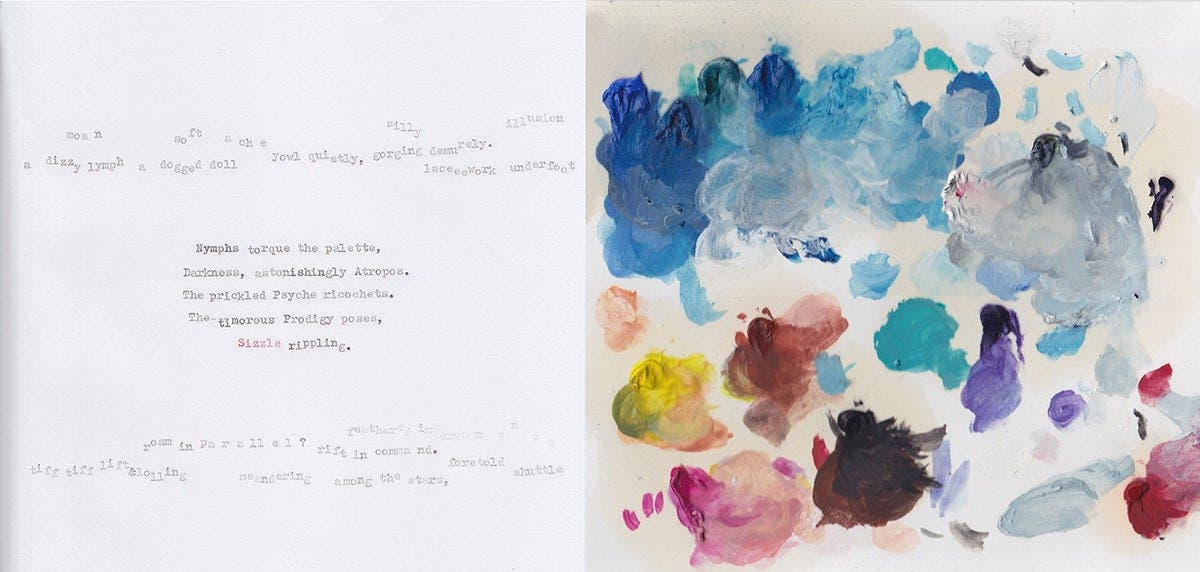 moan soft ache silly illusion
a dizzy lymph a dogged doll yowl quietly, gorging demurely.
laceeework underfoot
Nymphs torque the palette,
Darkness, astonishingly Atropos.
The prickled Psyche ricochets.
The timorous Prodigy poses,
Sizzle rippling.
feathered impermanence
roam in parallel? rift in command.
tiff tiff lift&lolling meandering among the stars, foretold shuttle